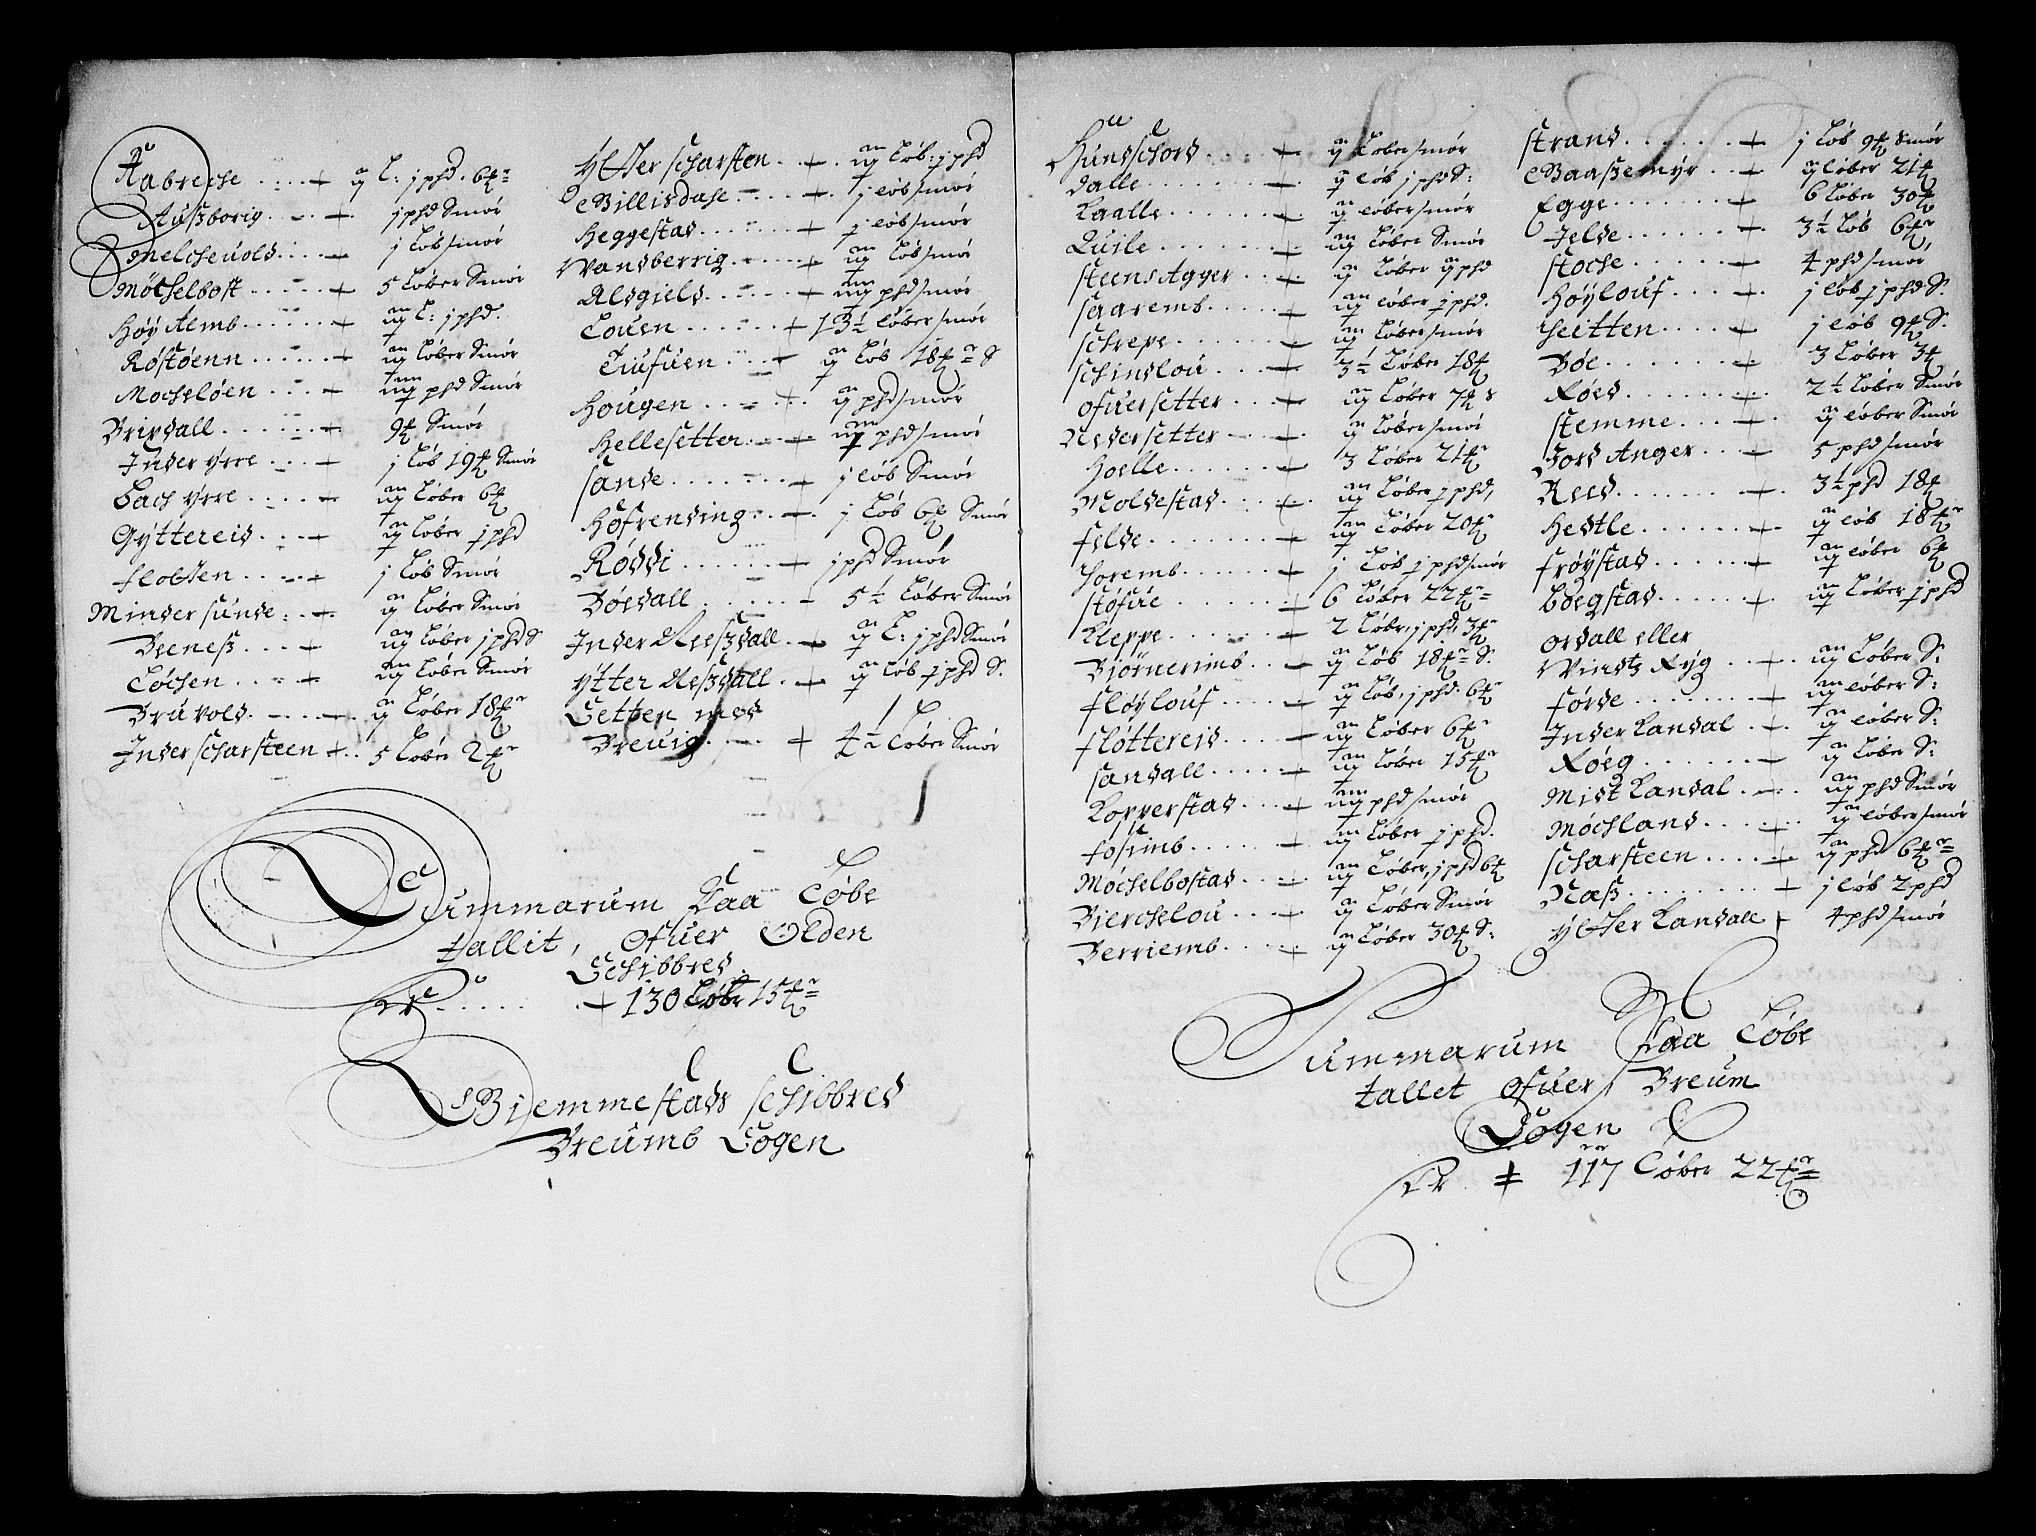 Aabreche ..... + ij L: j phd. 6 ℔r
Aussborig .... + j phd Smör
Melcheuold .... + j Löb smör
Möchelbost ..... + 5 Löber Smör
Höy Aemb ...... + iij L: j phd.
Röstöenn ..... + iij Löber Smör
Mocheloen .... + iiij phd Smör
Brixdall ...... + 9 ℔ Smör
Inder Yrre .... + j Löb 19 ℔ Smör
Bach Yrre .... + iij Löber 6 ℔
Gyttereid .... + ij Löber j phd
flobten .... + j Löb Smör
Minder sunde: .. + ij Löber Smör
Beeness .... + iij Löber j phd S
Löchen .... + iij Löber Smör
Bruvold .... + ij Löber 18 ℔r
Inder scharsteen + .. 5 Löber 2 ℔r
Ytter scharsten .. + .. iij Löb: j phd
Billisdahe ..... + j Löb smör
Heggestad ..... + j Löb smör
Vandberrig ..... + iij Löb smör
Aldgield ..... + iiij phd smör
Louen ..... + 13½ Löber smör
Tiufuen .... + ij Löb 18 ℔r S
Hougen ..... + ij phd smör
Hellesetter .... + iiij phd smör
Sande ....... + j Löb Smör
Höfrending .... + j Löb 6 ℔ Smör
Röddi ...... + j phd Smör
Böedall ...... + 5½ Löber Smör
Inder Neesdall .. + ij L: j phd Smör
Ytter Nessdall .. + ij Löb j phd S.
Setten med
Breuig .... + 4½ Löber Smör
Summarum Paa Löbe
tallit, Ofuer Olden
Schibbred.
Er ..... + 130 Löbr 15 ℔r
Giemmestads schibbred
Breumb Sogen
Hundschord ..... + ij Löber smör
Dalle ....... + ij Löb j phd S:
Kaalle ....... + ij Löber smör
Quile ....... + iij Löber Smör
SteensAgger .... + ij Löber ij phd
Saaremb ..... + iij Löber j phd.
Schrepe ...... + iij Löber smör
Schindlou .... + 3½ Löber 18 ℔
Ofuersetter ... + iij Löber 7 ℔ S
Nedersetter ... + ij Löber smör
Hoelle ...... + 3 Löber 21 ℔r
Moldestad .... + iij Löber j phd,
felde ....... + iij Löber 20 ℔r
Soremb ...... + j Löb j phd smör
Stöfue ...... + 6 Löber 22 ℔r
Kleppe ...... + 2 Löbr, j phd, 3 ℔r
Björnerimb .. + ij Löb 18 ℔r S.
flöylouf .... + ij Löb, j phd. 6 ℔r
flöttereid .... + iij Löber 6 ℔r
Sandall ..... + iij Löber 15 ℔r
Kopperstad .... + iiij phd smör
fösimb ...... + iij Löber j phd.
Möchelbostad .. + iij Löber, j phd 6 ℔
Bierchelou .. + ij Löber Smör
Berriemb ..... + ij Löber 30 ℔ S:
Strand ....... + j Löb 9 ℔ Smör
Baassemyr .. + ij Löber 21 ℔
Egge ....... + 6 Löber 30 ℔
Jelde ...... + 3½ Löb 6 ℔r
Stoche ...... + 4 phd smör,
Höylouf .... + j Löb j phd S.
Seitten .... + j Löb 9 ℔ S.
Böe ....... + 3 Löber 3 ℔
Röed ....... + 2½ Löber Smör
Stemme .... + ij Löber Smör
Jord Anger ... + 5 phd smör
Reed ....... + 3½ phd 18 ℔
Hestle ...... + ij Löb 18 ℔r
fröystad ..... + iij Löber 6 ℔
Böegstad ..... + iij Löber j phd
ordall eller
Vindtz Ryg ... + iij Löber S:
förde ....... + iij Löber S:
Inder Landal .. + ij Löber S:
Röeg ...... + ij Löber S:
Midt Landal .... iiij phd Smör
Möchland ..... + ij Löber smör
Scharsteen .... + ij phd 6 ℔r
Næss ........ + j Löb 2 phd
Ytter Landall + 4 phd smör
Summarum Paa Löbe
tallet Ofuer Breum
Sogen
Er + 117 Löber 22 ℔r